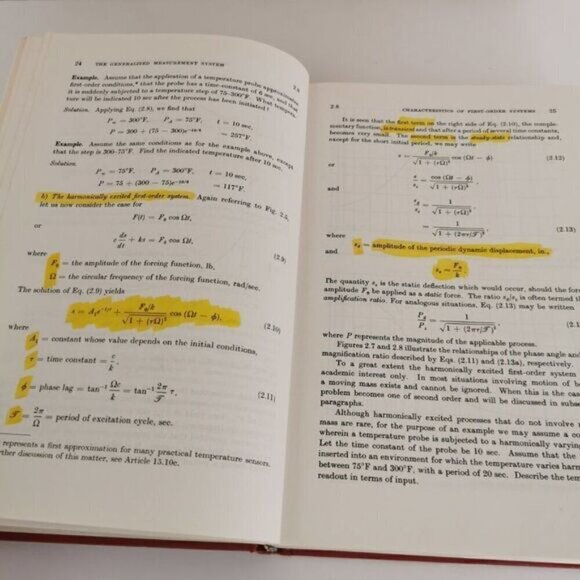 24 THE GENERALIZED MEASUREMENT SYSTEM 2.8
Example. Assume that the application of a temperature probe approximates
first-order conditions,* that the probe has a time-constant of 6 sec, and that
it is suddenly subjected to a temperature step of 75-300°F. What tempera-
ture will be indicated 10 sec after the process has been initiated?
Solution. Applying Eq. (2.8), we find that
P∞ = 300°F, P_A = 75°F, t = 10 sec,
P = 300 + (75 − 300)e^{-10/6}
= 257°F
Example. Assume the same conditions as for the example above, except
that the step is 300-75°F. Find the indicated temperature after 10 sec.
Solution.
P∞ = 75°F, P_A = 300°F, t = 10 sec,
P = 75 + (300 − 75)e^{-10/6}
= 117°F.
b) The harmonically excited first-order system. Again referring to Fig. 2.5,
let us now consider the case for
F(t) = F₀ cos Ωt,
or
c ds/dt + ks = F₀ cos Ωt, (2.9)
where
F₀ = the amplitude of the forcing function, lb,
Ω = the circular frequency of the forcing function, rad/sec.
The solution of Eq. (2.9) yields
s = A₁e^{-t/τ} + (F₀/k)/√(1 + (τΩ)²) cos (Ωt − φ), (2.10)
where
A₁ = constant whose value depends on the initial conditions,
τ = time constant = c/k,
φ = phase lag = tan⁻¹ Ωc/k = tan⁻¹ 2π/𝒯 τ, (2.11)
𝒯 = 2π/Ω = period of excitation cycle, sec.
represents a first approximation for many practical temperature sensors.
rther discussion of this matter, see Article 13.10c.
2.8 CHARACTERISTICS OF FIRST-ORDER SYSTEMS 25
It is seen that the first term on the right side of Eq. (2.10), the comple-
mentary function, is transient and that after a period of several time constants,
becomes very small. The second term is the steady-state relationship and,
except for the short initial period, we may write
s = (F₀/k)/√(1 + (τΩ)²) cos (Ωt − φ) (2.12)
or
s/sₛ = cos (Ωt − φ)/√(1 + (τΩ)²)
and
/sₛ = 1/√(1 + (τΩ)²),
= 1/√(1 + (2πτ/𝒯)²), (2.13)
where
= amplitude of the periodic dynamic displacement, in.,
and
sₛ = F₀/k.
The quantity sₛ is the static deflection which would occur, should the for
amplitude F₀ be applied as a static force. The ratio /sₛ is often termed t
amplification ratio. For analogous situations, Eq. (2.13) may be written
/Pₛ = 1/√(1 + (2πτ/𝒯)²), (2.1
where P represents the magnitude of the applicable process.
Figures 2.7 and 2.8 illustrate the relationships of the phase angle and
magnification ratio described by Eqs. (2.11) and (2.13a), respectively.
To a great extent the harmonically excited first-order system
academic interest only. In most situations involving motion of b
a moving mass exists and cannot be ignored. When this is the cas
problem becomes one of second order and will be discussed in subse
paragraphs.
Although harmonically excited processes that do not involve
mass are rare, for the purpose of an example we may assume a co
wherein a temperature probe is subjected to a harmonically varying
Let the time constant of the probe be 10 sec. Assume that the
inserted into an environment for which the temperature varies harm
between 75°F and 300°F, with a period of 20 sec. Describe the tem
readout in terms of input.